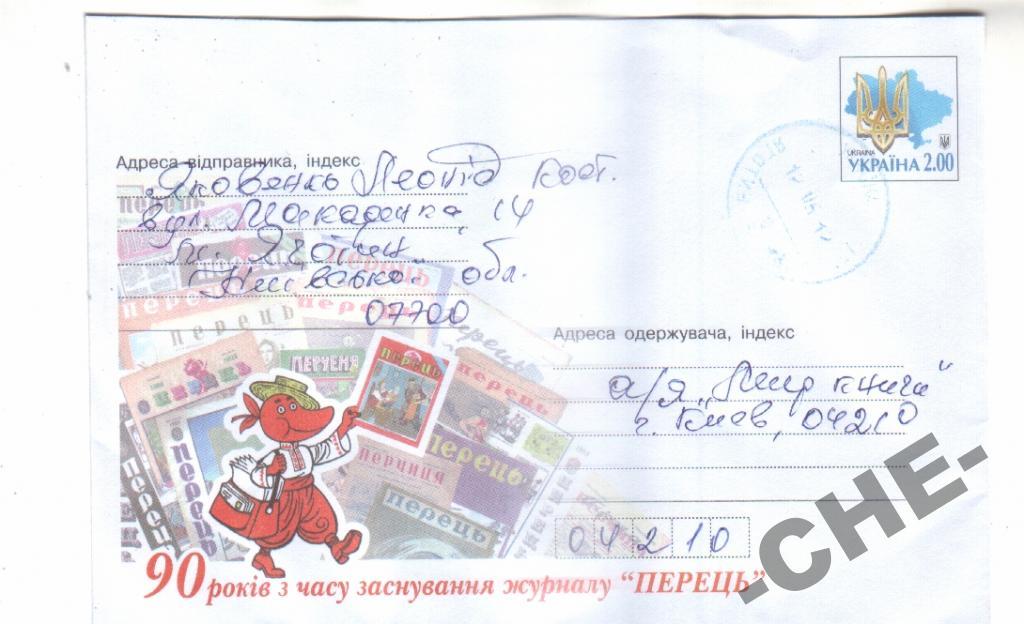 UKRAINA
УКРАЇНА 2.00
Адреса відправника, індекс
Яковенко Леонід Кост.
вул. Макаренка 14
м. Яготин
Київської обл.
07700
Адреса одержувача, індекс
а/я "Мир книги"
г. Киев, 04210
04210
перець
перець
перець
ПЕРЧЕНЯ
ПЕРЕЦЬ
перець
перчиця
перець
перець
перець
90 років з часу заснування журналу "ПЕРЕЦЬ"
-CHE-